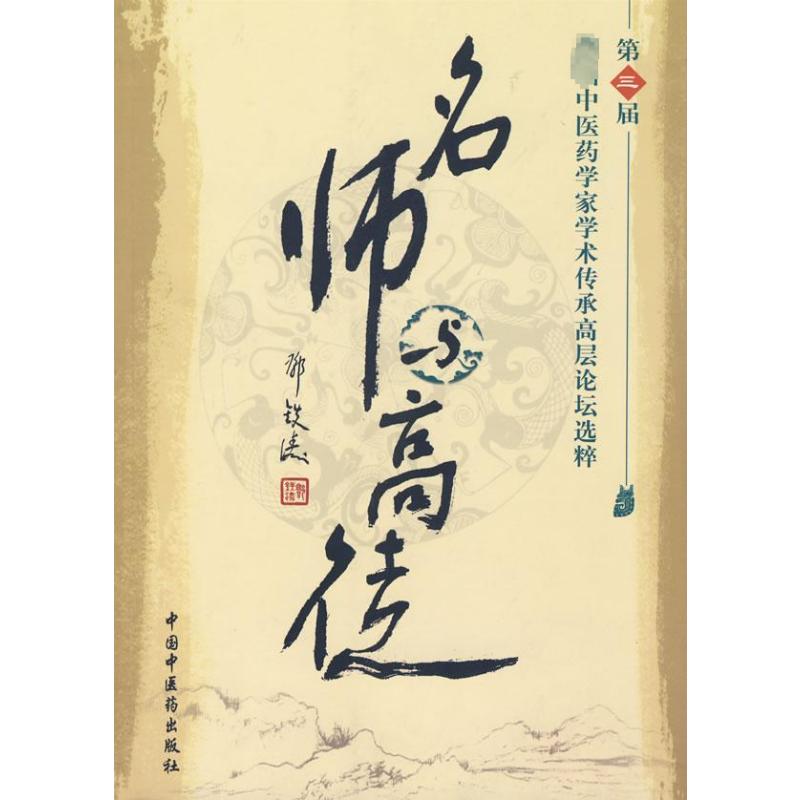 第三届
中医药学家学术传承高层论坛选粹
名师与高徒
邓铁涛
中国中医药出版社